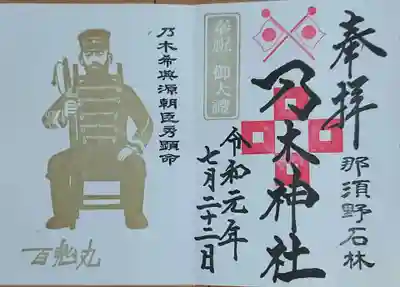 奉拝
那須野石林
乃木神社
奉祝 御大禮
令和元年
七月二十二日
乃木希典源朝臣秀顕命